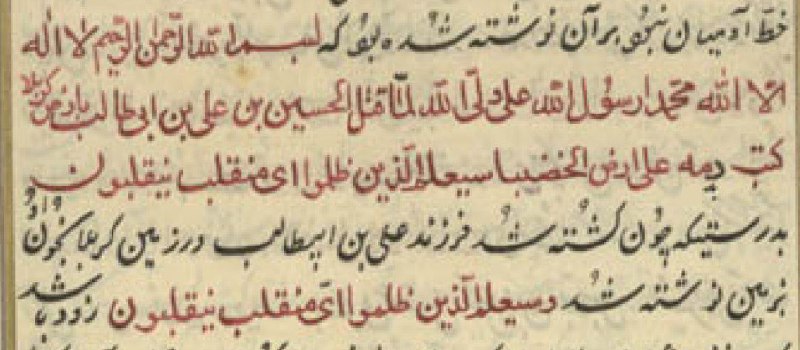 خط آدمیان نبود بر آن نوشته شده بود که بسم الله الرحمن الرحیم لا اله
الا الله محمدا رسول الله علی ولی الله لما قتل الحسین بن علی بن ابی طالب بارض کربلا
کتب دمه علی ارض الحصبا سیعلم الذین ظلموا ای منقلب ینقلبون
بدرستیکه چون کشته شد فرزند علی بن ابیطالب در زمین کربلا بخون او
بر زمین نوشته شد و سیعلم الذین ظلموا ای منقلب ینقلبون زود باشد